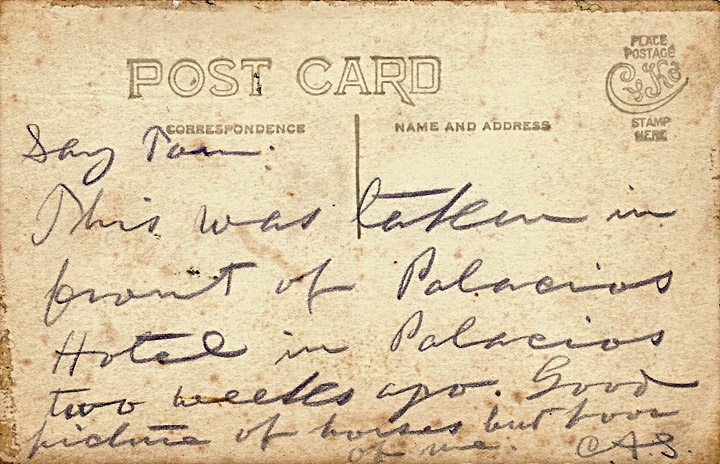 POST CARD
PLACE
POSTAGE
STAMP
HERE
CORRESPONDENCE
NAME AND ADDRESS
Say Tom.
This was taken in
front of Palacios
Hotel in Palacios
two weeks ago. Good
picture of horses but poor
of me. CAS.